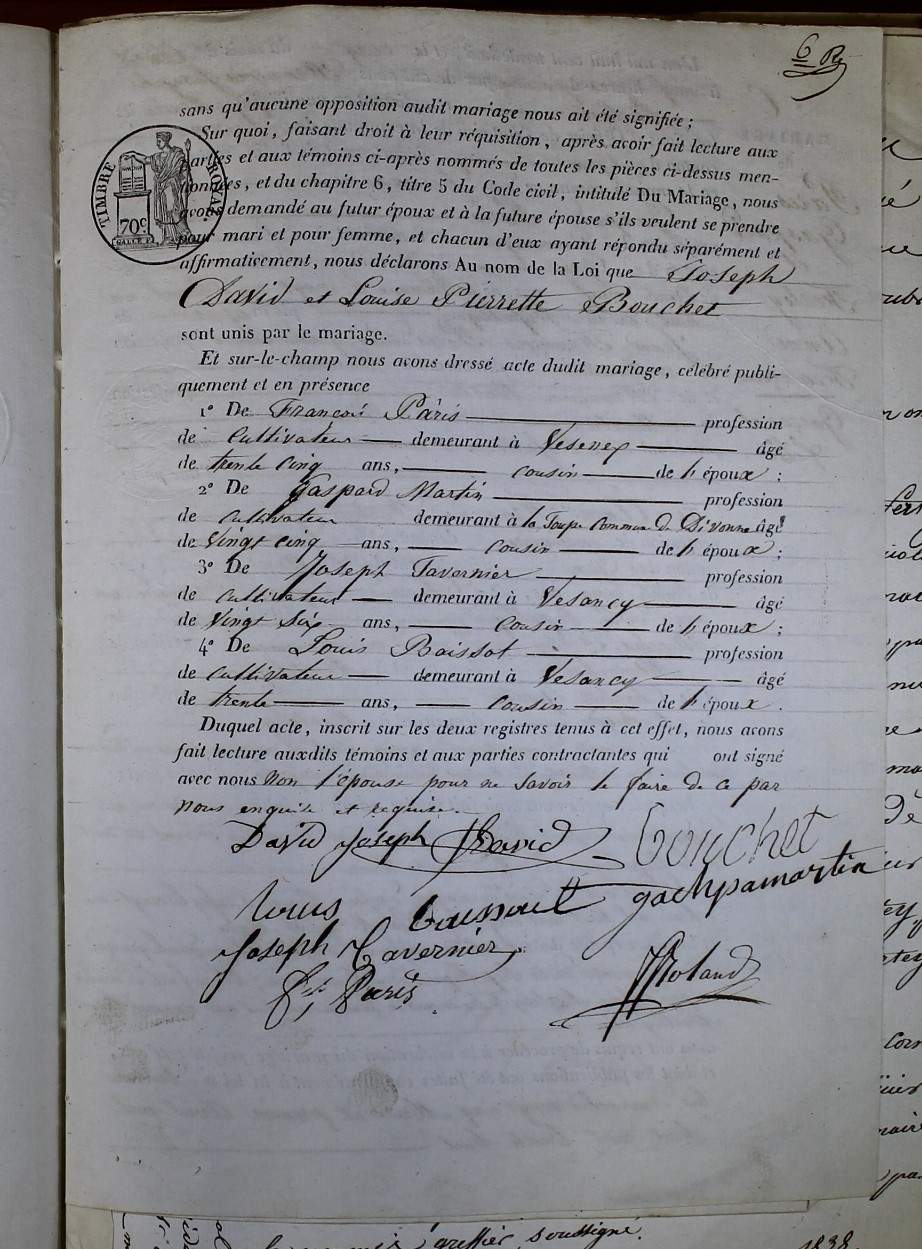 6 R
sans qu'aucune opposition audit mariage nous ait été signifiée ;
Sur quoi, faisant droit à leur réquisition, après avoir fait lecture aux
parties et aux témoins ci-après nommés de toutes les pièces ci-dessus men-
tionnées, et du chapitre 6, titre 5 du Code civil, intitulé Du Mariage, nous
avons demandé au futur époux et à la future épouse s'ils veulent se prendre
pour mari et pour femme, et chacun d'eux ayant répondu séparément et
affirmativement, nous déclarons Au nom de la Loi que Joseph
TIMBRE ROYAL
70c
David et Louise Pierrette Bouchet
sont unis par le mariage.
Et sur-le-champ nous avons dressé acte dudit mariage, célébré publi-
quement et en présence
1° De François Pâris profession
de Cultivateur demeurant à Vesenex âgé
de trente cinq ans, cousin de l'époux ;
2° De Gaspard Martin profession
de Cultivateur demeurant à la commune de Divonne âgé
de Vingt cinq ans, cousin de l'époux ;
3° De Joseph Tavernier profession
de Cultivateur demeurant à Vesancy âgé
de Vingt Six ans, cousin de l'époux ;
4° De Louis Baissot profession
de Cultivateur demeurant à Vesancy âgé
de trente ans, cousin de l'époux.
Duquel acte, inscrit sur les deux registres tenus à cet effet, nous avons
fait lecture auxdits témoins et aux parties contractantes qui ont signé
avec nous non l'épouse pour ne Savoir le faire de ce par
nous enquise et requise.
David Joseph David Bouchet
Louis gachpamartin
Joseph Tavernier
Fçs Paris Roland
greffier soussigné.
1838.